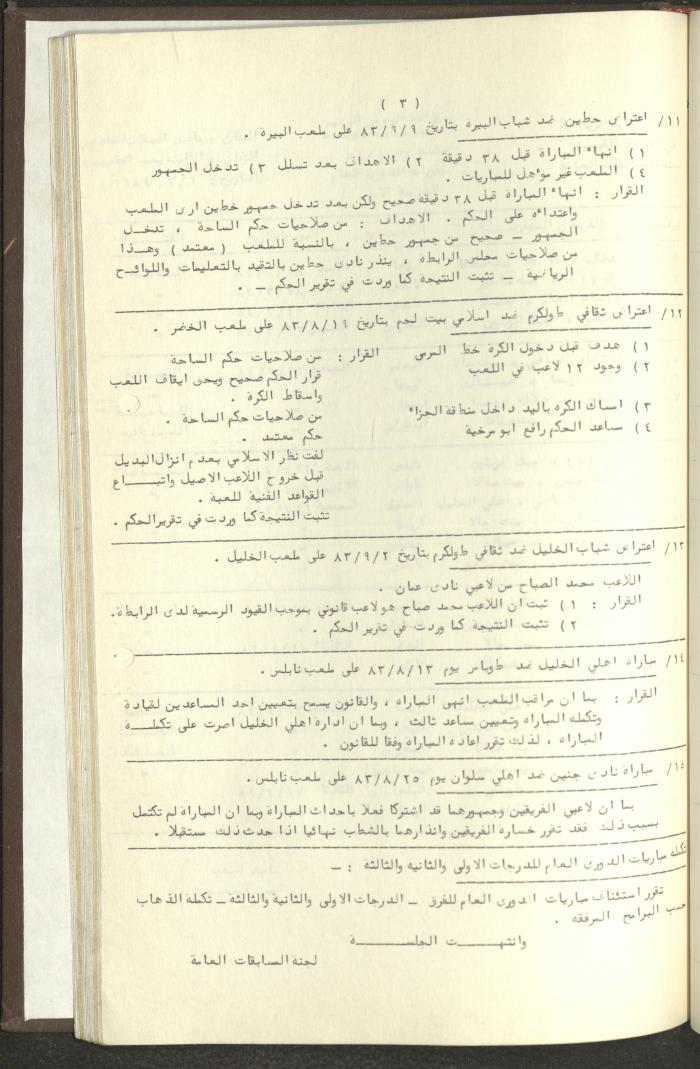 ( ٣ )
١١/ اعتراض حطين ضد شباب البيره بتاريخ ٨٣/٩/٩ على ملعب البيرة .
١) انهاء المباراة قبل ٣٨ دقيقة ٢) الاهداف بعد تسلل ٣) تدخل الجمهور
٤) الملعب غير مؤهل للمباريات .
القرار : انهاء المباراة قبل ٣٨ دقيقة صحيح ولكن بعد تدخل جمهور خطين ارى الملعب
واعتداءه على الحكم . الاهداف : من صلاحيات حكم الساحة ، تدخـل
الجمهور ــ صحيح من جمهور حطين ، بالنسبة للملعب ( معتمد ) وهـذا
من صلاحيات مجلس الرابطة ، ينذر نادى حطين بالتقيد بالتعليمات واللوائـح
الرياضية ــ تثبت النتيجة كما وردت في تقرير الحكم ــ .
١٢/ اعتراض ثقافي طولكرم ضد اسلامي بيت لحم بتاريخ ٨٣/٨/١٩ على ملعب الخضر .
١) هدف قبل دخول الكرة خط المرمى القرار : من صلاحيات حكم الساحة
٢) وجود ١٢ لاعب في اللعب قرار الحكم صحيح ويحق ايقاف اللعب
واسقاط الكرة .
٣) امساك الكره باليد داخل منطقة الجزاء من صلاحيات حكم الساحة .
٤) مساعد الحكم رافع ابو مرخية حكم معتمد .
لفت نظر الاسلامي بعدم انزال البديل
قبل خروج اللاعب الاصيل واتبـــاع
القواعد الفنية للعبة .
تثبت النتيجة كما وردت في تقرير الحكم .
١٣/ اعتراض شباب الخليل ضد ثقافي طولكرم بتاريخ ٨٣/٩/٢ على ملعب الخليل .
اللاعب محمد الصباح من لاعبي نادى عمان .
القرار : ١) ثبت ان اللاعب محمد صباح هو لاعب قانوني بموجب القيود الرسمية لدى الرابطة.
٢) تثبت النتيجة كما وردت في تقرير الحكم .
١٤/ مباراه اهلي الخليل ضد طوباس يوم ٨٣/٨/١٣ على ملعب نابلس .
القرار : بما ان مراقب الملعب انهى المباراه ، والقانون يسمح بتعيين احد المساعدين لقيادة
وتكمله المباراه وتعيين مساعد ثالث ، وبما ان اداره اهلي الخليل اصرت على تكملـة
المباراه ، لذلك تقرر اعاده المباراه وفقا للقانون .
١٥/ مباراة نادى جنين ضد اهلي سلوان يوم ٨٣/٨/٢٥ على ملعب نابلس .
بما ان لاعبي الفريقين وجمهورهما قد اشتركا فعلا باحداث المباراة وبما ان المباراة لم تكتمل
بسبب ذلك فقد تقرر خساره الفريقين وانذارهما بالشطب نهائيا اذا حدث ذلك مستقبلا .
تكمله مباريات الدورى العام للدرجات الاولى والثانيه والثالثه : ــ
تقرر استئناف مباريات الدورى العام للفرق ــ الدرجات الاولى والثانية والثالثة ــ تكمله الذهاب
حسب البرامج المرفقه .
وانتهـــت الجلســـة
لجنه المسابقات العامة